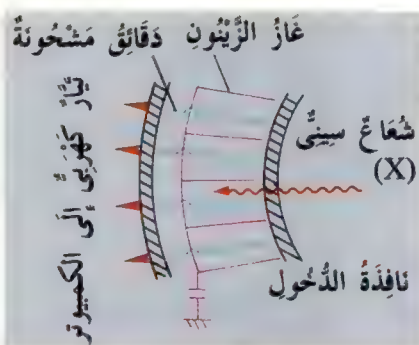 غَازُ الزَّيْنُونِ
دَقَائِقُ مَشْحُونَةٌ
شُعَاعٌ سِينِىٌّ
(X)
نَافِذَةُ الدُّخُولِ
تَيَّارٌ كَهْرَبِىٌّ إِلَى الكمبيوتر